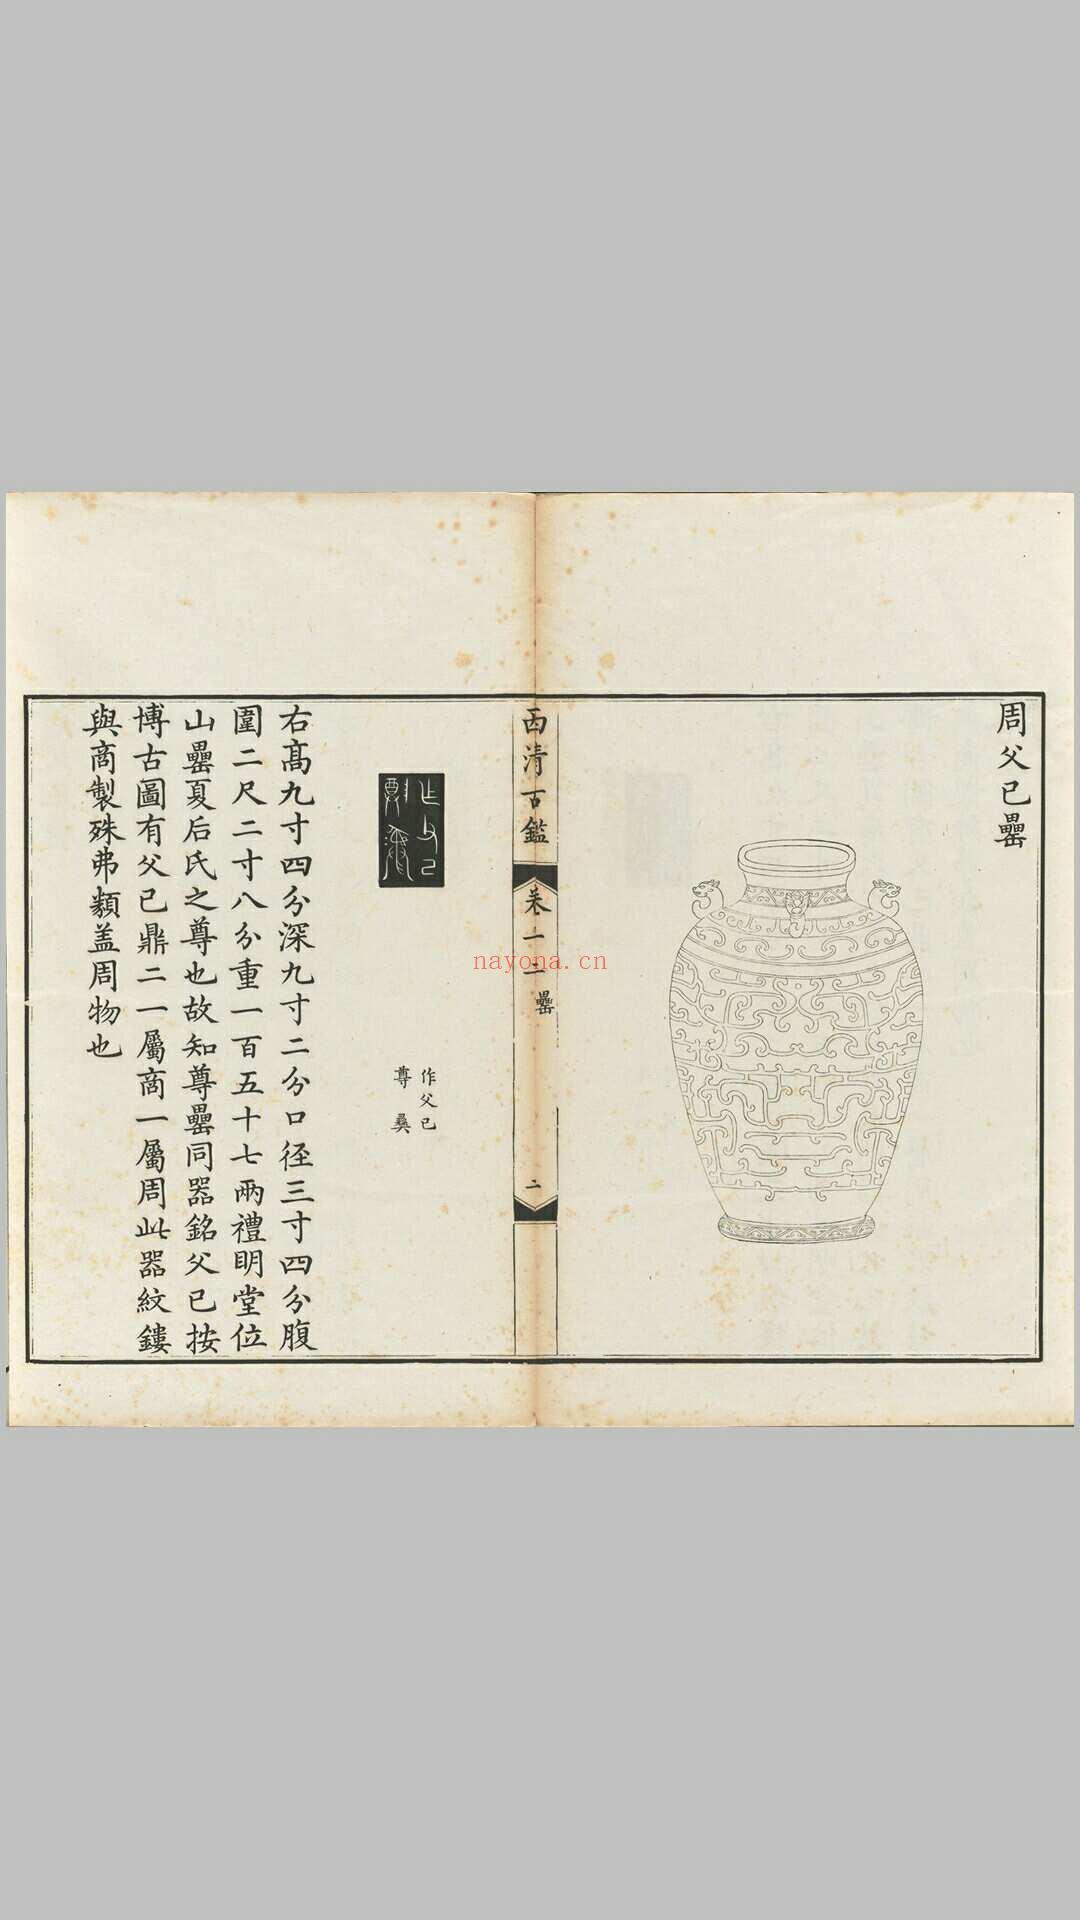 周父己罍
西清古鑑
卷十二 罍
二
nayona.cn
作父己
尊彝
右高九寸四分深九寸二分口徑三寸四分腹
圍二尺二寸八分重一百五十七兩禮明堂位
山罍夏后氏之尊也故知尊罍同器銘父己按
博古圖有父己鼎二一屬商一屬周此器紋鏤
與商製殊弗類盖周物也